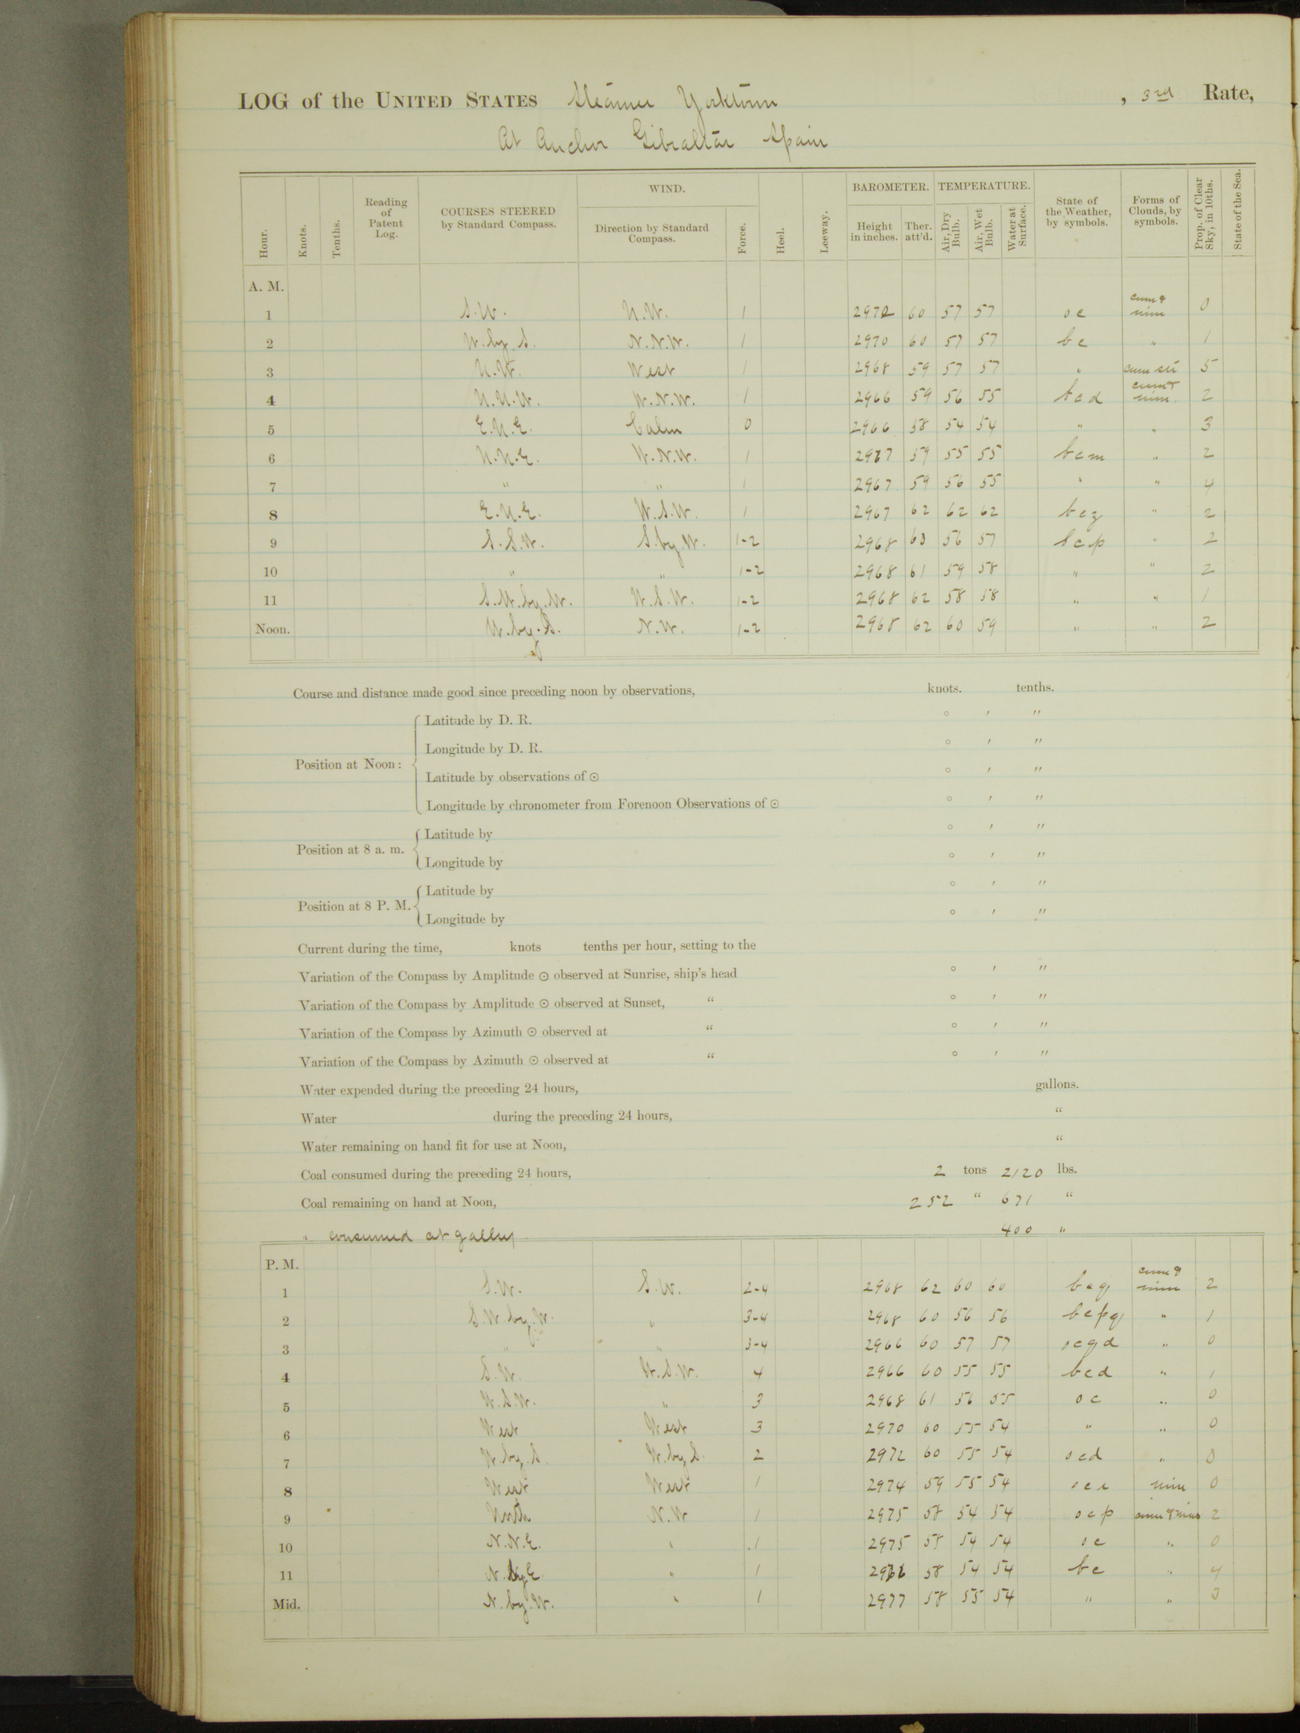 LOG of the UNITED STATES Steamer Yorktown , 3rd Rate,
At Anchor Gibraltar Spain
Hour. Knots. Tenths. Reading of Patent Log. COURSES STEERED by Standard Compass. WIND. Direction by Standard Compass. Force. Heel. Leeway. BAROMETER. Height in inches. Ther. att'd. TEMPERATURE. Air, Dry Bulb. Air, Wet Bulb. Water at Surface. State of the Weather, by symbols. Forms of Clouds, by symbols. Prop. of Clear Sky, in 10ths. State of the Sea.
A. M.
1 S.W. N.W. 1 2972 60 57 57 oc cum & nim 0
2 W. by S. N.N.W. 1 2970 60 57 57 bc " 1
3 N.W. West 1 2968 59 57 57 " 5
4 N.N.W. W.N.W. 1 2966 59 56 55 bcd cum & nim. 2
5 E.N.E. Calm 0 2966 58 54 54 " " 3
6 N.N.E. W.N.W. 1 2967 59 55 55 bcm " 2
7 " " 1 2967 59 56 55 " " 4
8 E.N.E. W.S.W. 1 2967 62 62 62 bcz " 2
9 S.S.W. S. by W. 1-2 2968 63 56 57 bcp " 2
10 " " 1-2 2968 61 59 58 " " 2
11 S.W. by W. W.S.W. 1-2 2968 62 58 58 " " 1
Noon. W. by S. N.W. 1-2 2968 62 60 59 " " 2
Course and distance made good since preceding noon by observations, knots. tenths.
Position at Noon: Latitude by D. R. ° ′ ″
Longitude by D. R. ° ′ ″
Latitude by observations of ☉ ° ′ ″
Longitude by chronometer from Forenoon Observations of ☉ ° ′ ″
Position at 8 a. m. Latitude by ° ′ ″
Longitude by ° ′ ″
Position at 8 P. M. Latitude by ° ′ ″
Longitude by ° ′ ″
Current during the time, knots tenths per hour, setting to the
Variation of the Compass by Amplitude ☉ observed at Sunrise, ship's head ° ′ ″
Variation of the Compass by Amplitude ☉ observed at Sunset, " ° ′ ″
Variation of the Compass by Azimuth ☉ observed at " ° ′ ″
Variation of the Compass by Azimuth ☉ observed at " ° ′ ″
Water expended during the preceding 24 hours, gallons.
Water during the preceding 24 hours, "
Water remaining on hand fit for use at Noon, "
Coal consumed during the preceding 24 hours, 2 tons 2120 lbs.
Coal remaining on hand at Noon, 252 " 671 "
" consumed at galley 400 "
P. M.
1 S.W. S.W. 2-4 2968 62 60 60 bcq cum & nim 2
2 S.W. by W. " 3-4 2968 60 56 56 bcpq " 1
3 " " 3-4 2966 60 57 57 ocqd " 0
4 S.W. W.S.W. 4 2966 60 55 55 bcd " 1
5 W.S.W. " 3 2968 61 56 55 oc " 0
6 West West 3 2970 60 55 54 " " 0
7 W. by S. W. by S. 2 2972 60 55 54 ocd " 0
8 West West 1 2974 59 55 54 nim 0
9 North N.W 1 2975 58 54 54 ocp cum & nim 2
10 N.N.E. " 1 2975 58 54 54 oc " 0
11 N. by E " 1 58 54 54 bc " 4
Mid. N. by W. " 1 2977 58 55 54 " " 3